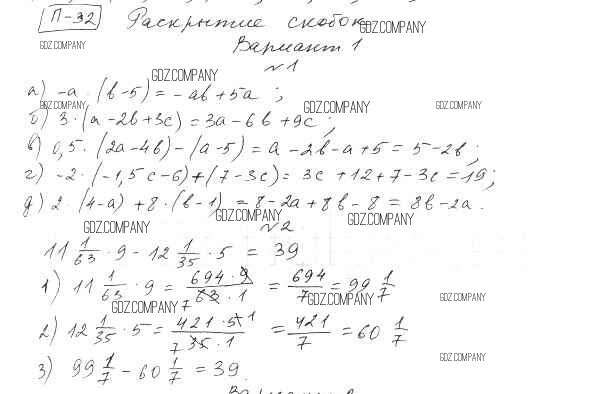 П-32 Раскрытие скобок
GDZ.COMPANY
GDZ.COMPANY
Вариант 1
№1
GDZ.COMPANY
а) -a · (b-5) = -ab + 5a ;
GDZ.COMPANY GDZ.COMPANY GDZ.COMPANY
б) 3 · (a - 2b + 3c) = 3a - 6b + 9c ;
в) 0,5 · (2a - 4b) - (a - 5) = a - 2b - a + 5 = 5 - 2b ;
г) -2 · (-1,5c - 6) + (7 - 3c) = 3c + 12 + 7 - 3c = 19 ;
д) 2 · (4-a) + 8 · (b-1) = 8 - 2a + 8b - 8 = 8b - 2a .
GDZ.COMPANY GDZ.COMPANY GDZ.COMPANY
№2
11 1/63 · 9 - 12 1/35 · 5 = 39
1) 11 1/63 · 9 = 694 · 9 / 63 · 1 = 694/7 = 99 1/7
7
GDZ.COMPANY GDZ.COMPANY GDZ.COMPANY
2) 12 1/35 · 5 = 421 · 5 1 / 7 35 · 1 = 421/7 = 60 1/7
GDZ.COMPANY
3) 99 1/7 - 60 1/7 = 39.